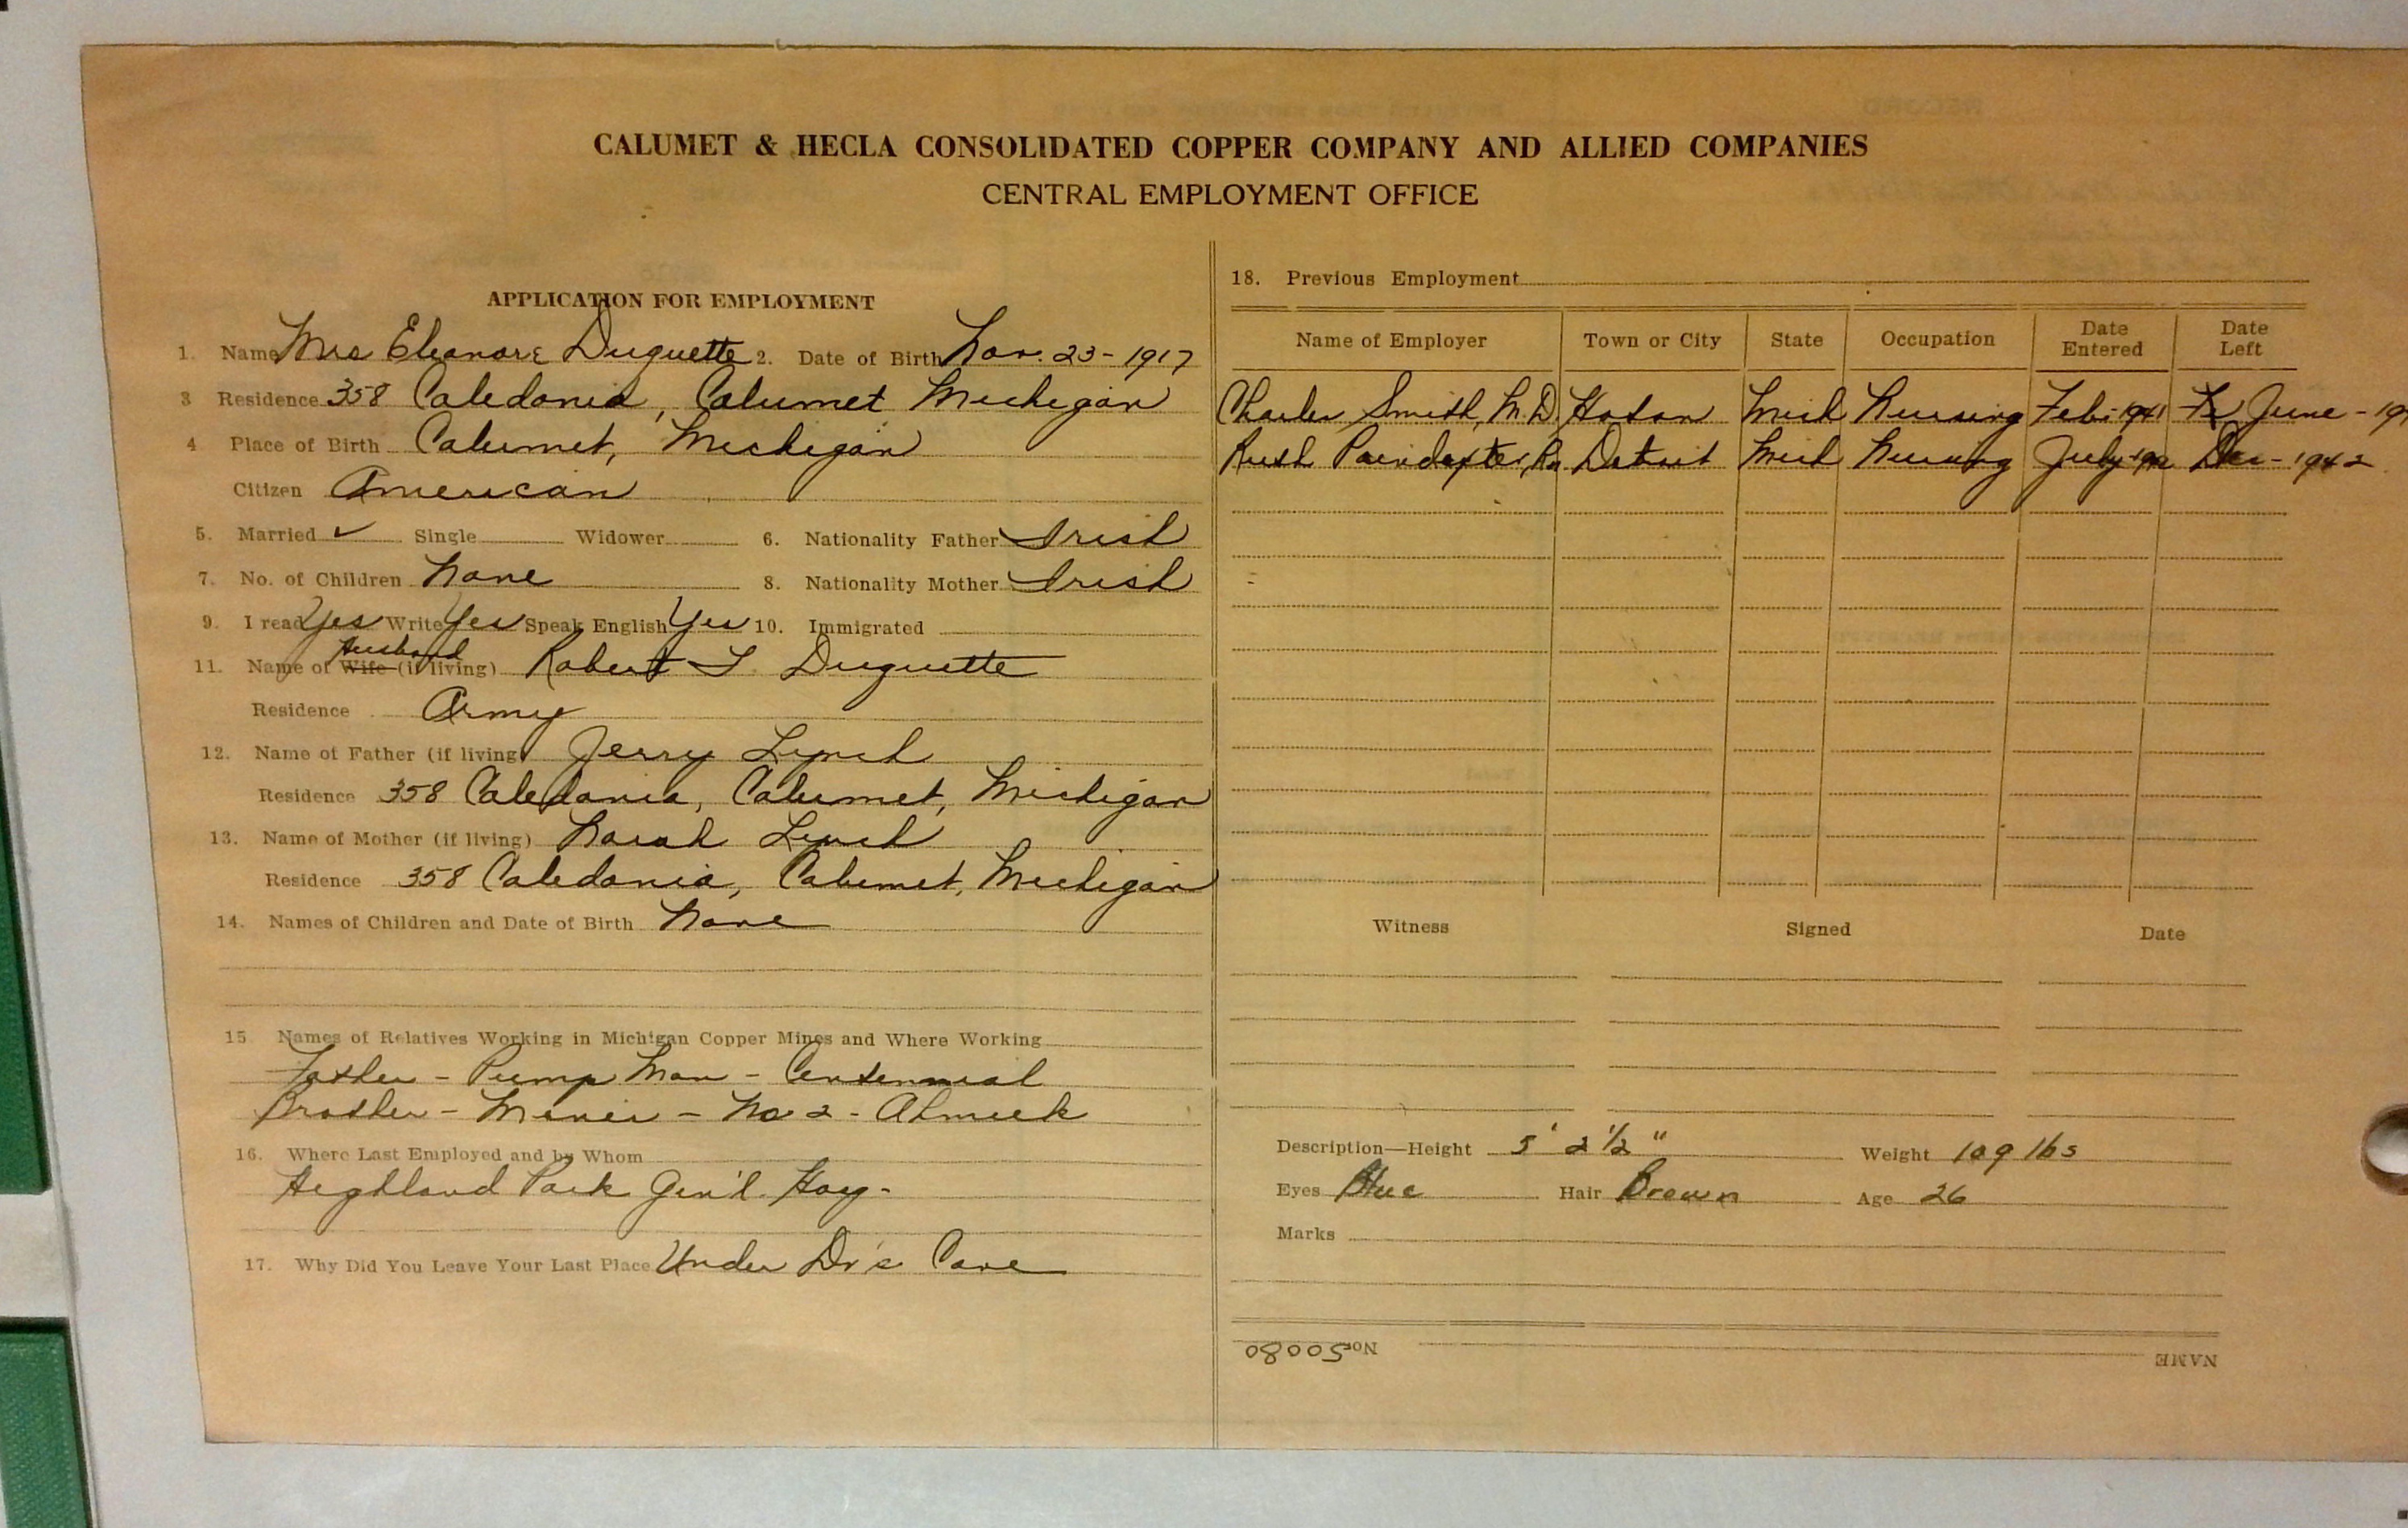 CALUMET & HECLA CONSOLIDATED COPPER COMPANY AND ALLIED COMPANIES
CENTRAL EMPLOYMENT OFFICE
APPLICATION FOR EMPLOYMENT
1. Name Mrs Eleanore Duquette 2. Date of Birth Nov. 23 - 1917
3 Residence 358 Caledonia, Calumet Michigan
4 Place of Birth Calumet, Michigan
Citizen American
5. Married ✓ Single Widower 6. Nationality Father Irish
7. No. of Children None 8. Nationality Mother Irish
9. I read Yes Write Yes Speak English Yes 10. Immigrated
Husband
11. Name of Wife (if living) Robert L Duquette
Residence Army
12. Name of Father (if living) Jerry Lynch
Residence 358 Caledonia, Calumet, Michigan
13. Name of Mother (if living) Norah Lynch
Residence 358 Caledonia, Calumet, Michigan
14. Names of Children and Date of Birth None
15. Names of Relatives Working in Michigan Copper Mines and Where Working
Father - Pump Man - Centennial
Brother - Miner - No 2 - Ahmeek
16. Where Last Employed and by Whom
Highland Park Gen'l. Hosp-
17. Why Did You Leave Your Last Place Under Dr's Care
18. Previous Employment
Name of Employer Town or City State Occupation Date Entered Date Left
Charles Smith, M.D. Mich Nursing Feb - 1941 June - 19
Ruth Poindexter, Rn Detroit Mich Nursing July Dec - 1942
Witness Signed Date
Description—Height 5' 2 1/2" Weight 109 lbs
Eyes Blue Hair Brown Age 26
Marks
No. 50080 NAME